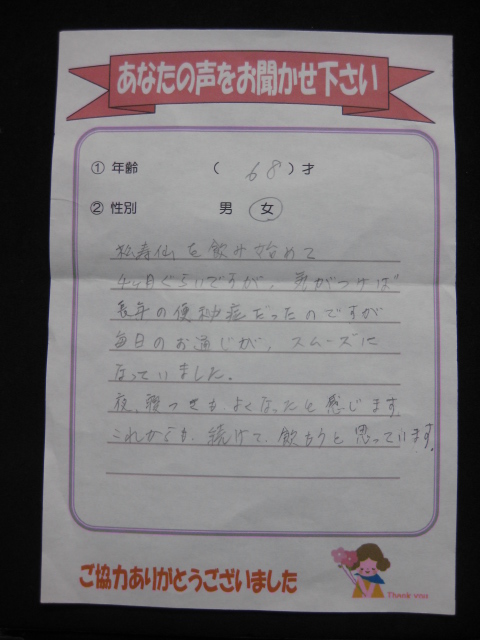 あなたの声をお聞かせ下さい
① 年齢 ( 68 ) 才
② 性別 男 女
松寿仙を飲み始めて
4ヶ月ぐらいですが、気がつけば
長年の便秘症だったのですが
毎日のお通じが、スムーズに
なっていました。
夜、寝つきも、よくなったと感じます。
これからも、続けて、飲もうと思っています。
ご協力ありがとうございました
Thank you